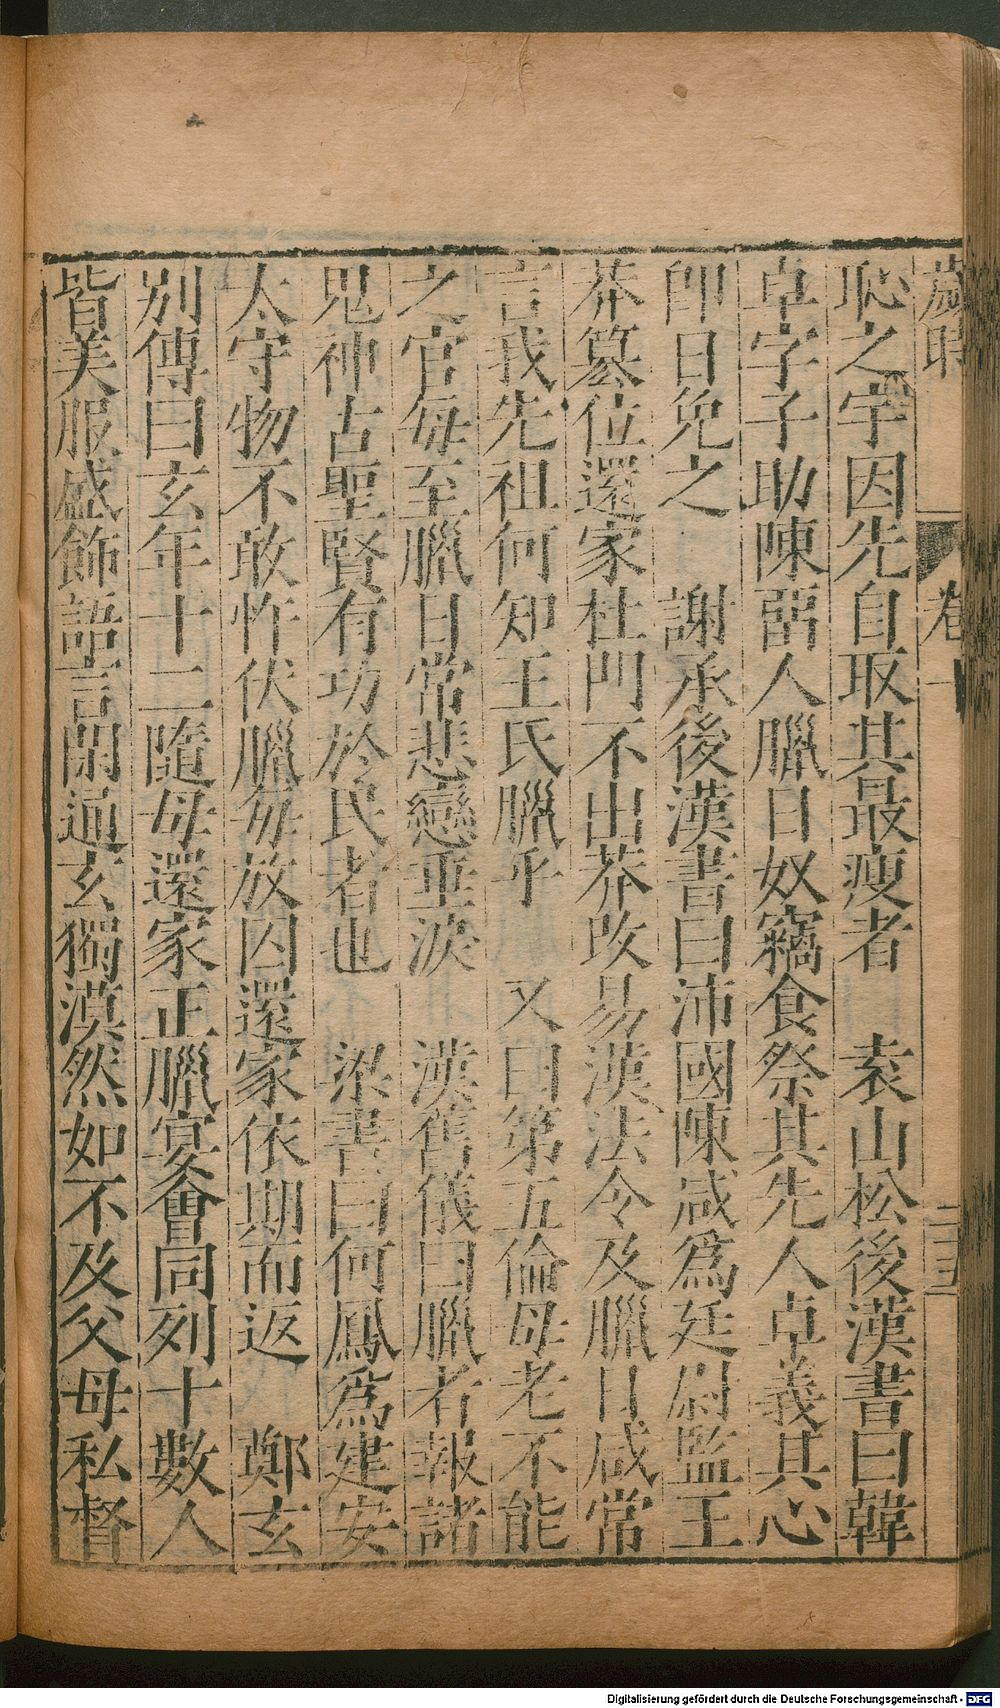 歲時
卷十
二十五
恥之字因先自取其最瘦者　袁山松後漢書曰韓
卓字子助陳留人臘日奴竊食祭其先人卓義其心
卽日免之　謝承後漢書曰沛國陳咸爲廷尉監王
莽簒位還家杜門不出莽攺易漢法令及臘日咸常
言我先祖何知王氏臘乎　又曰第五倫母老不能
之官每至臘日常悲戀垂淚　漢舊儀曰臘者報諸
鬼神古聖賢有功於民者也　梁書曰何鳳爲建安
太守物不敢怍伏臘每放囚還家依期而返　鄭玄
別傳曰玄年十二隨母還家正臘宴會同列十數人
皆美服盛飾語言閑通玄獨漠然如不及父母私督
Digitalisierung gefördert durch die Deutsche Forschungsgemeinschaft - DFG